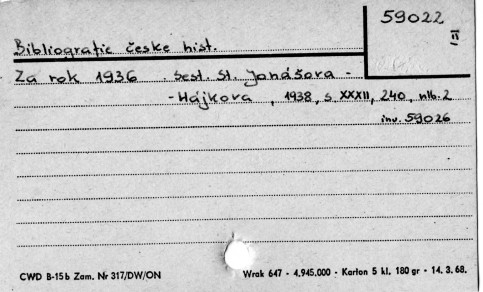 59022
II
Bibliografie česke hist.
Za rok 1936 sest. St. Jonášova -
- Hájkova, 1938, s. XXXII, 240, nlb. 2
inv. 59026
CWD B-15b Zam. Nr 317/DW/ON
Wrak 647 - 4.945.000 - Karton 5 kl. 180 gr - 14. 3. 68.